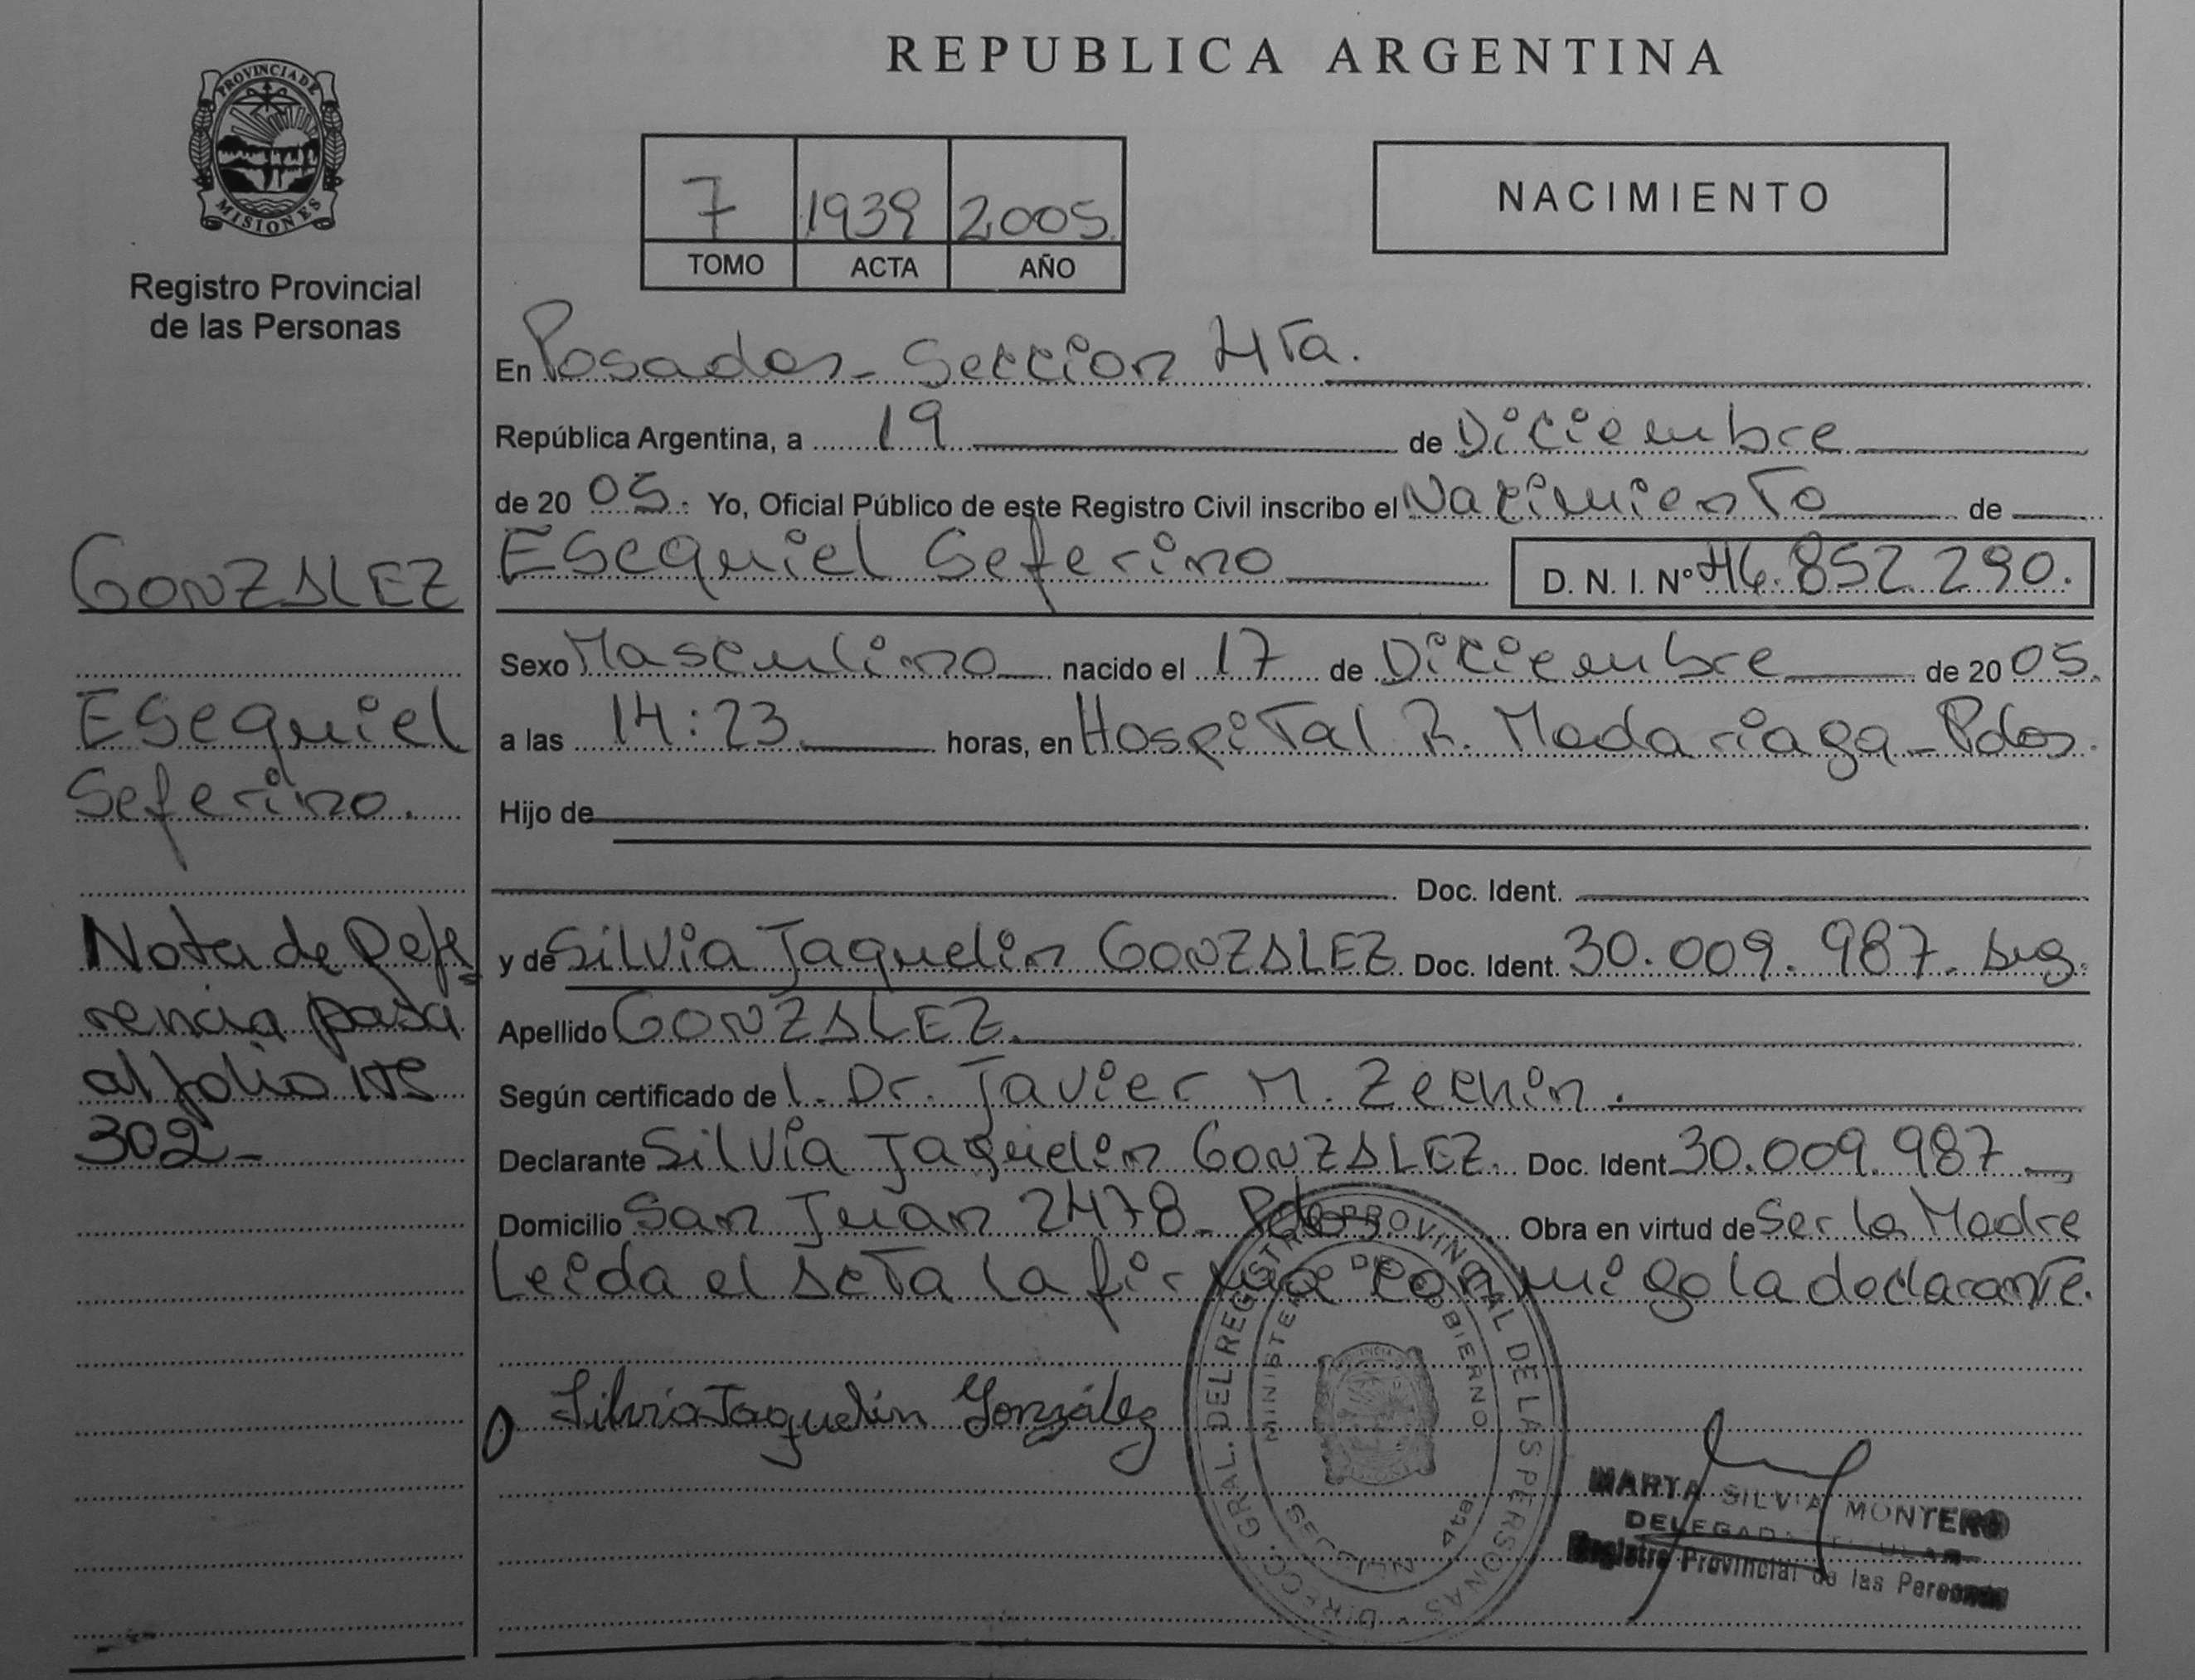 REPUBLICA ARGENTINA
PROVINCIA DE MISIONES
Registro Provincial
de las Personas
7 1939 2005.
TOMO ACTA AÑO
NACIMIENTO
En Posadas - Seccion 4Ta.
República Argentina, a 19 de Diciembre
de 20 05. Yo, Oficial Público de este Registro Civil inscribo el Nacimiento de
Esequiel Seferino D. N. I. Nº 46.852.290.
Sexo Masculino nacido el 17 de Diciembre de 20 05.
a las 14:23 horas, en Hospital R. Madariaga - Pdas.
Hijo de
Doc. Ident.
y de Silvia Jaquelin GONZALEZ Doc. Ident. 30.009.987. Arg.
Apellido GONZALEZ.
Según certificado de l. Dr. Javier M. Zechin.
Declarante Silvia Jaquelin GONZALEZ. Doc. Ident 30.009.987
Domicilio San Juan 2478 - Pdas. Obra en virtud de Ser la Madre
Leida el Acta la firma conmigo la declarante.
GONZALEZ
Esequiel
Seferino.
Nota de Refe
rencia pasa
al folio Nº
302-
Silvia Jaquelin González
DIRECC. GRAL. DEL REGISTRO PROVINCIAL DE LAS PERSONAS
MINISTERIO DE GOBIERNO
4ta
MARTA SILVIA MONTERO
DELEGADA TITULAR
Registro Provincial de las Personas